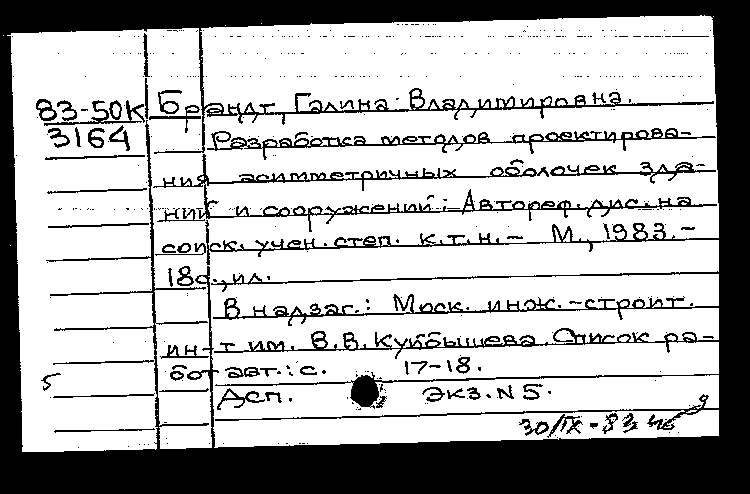 83-50К Брандт, Галина Владимировна.
3164 Разработка методов проектирова-
ния асимметричных оболочек зда-
ний и сооружений: Автореф. дис. на
соиск. учен. степ. к.т.н. - М., 1983. -
18с., ил.
В надзаг.: Моск. инж.-строит.
ин-т им. В.В. Куйбышева. Список ра-
бот авт.: с. 17-18.
5
Дсп. Экз. N 5.
30/IX-83